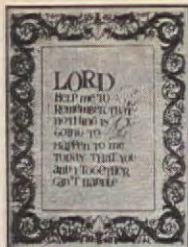 LORD
HELP ME TO
REMEMBER THAT
NOTHING IS
GOING TO
HAPPEN TO ME
TODAY THAT YOU
AND I TOGETHER
CAN'T HANDLE